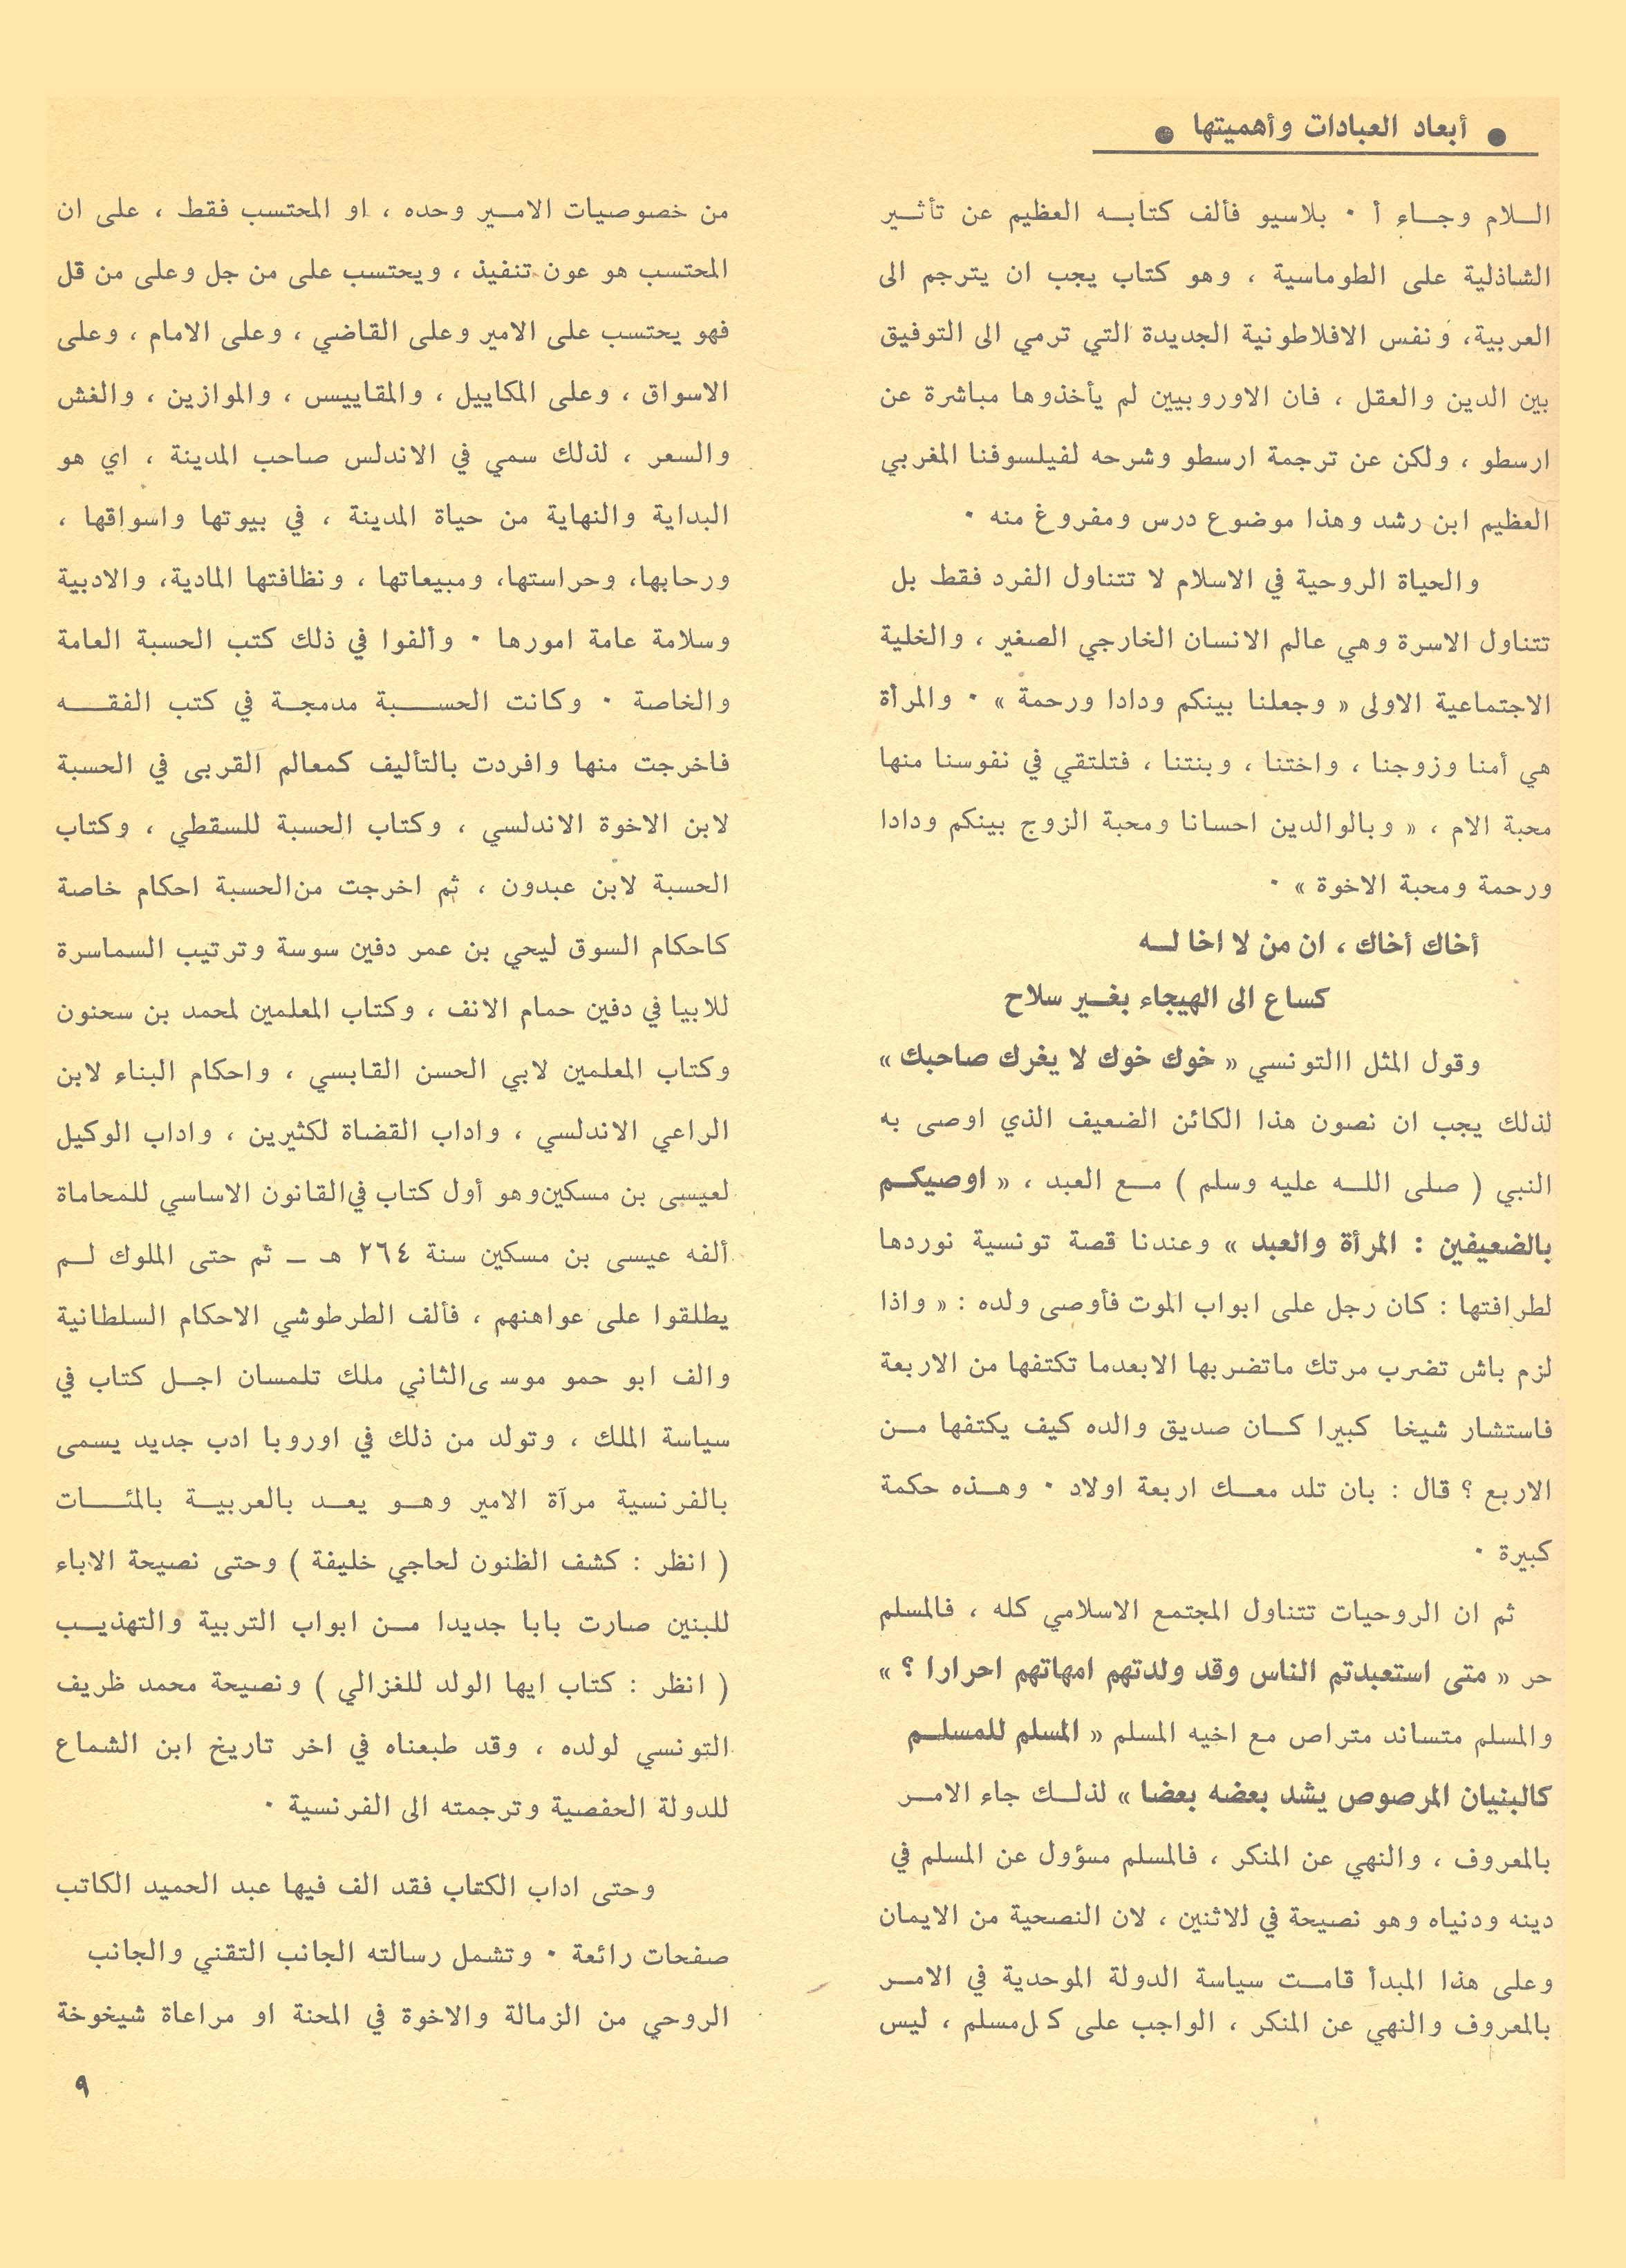 ● أبعاد العبادات وأهميتها ●
الـلام وجـاء أ ٠ بلاسيو فألف كتابـه العظيم عن تأثـير
الشاذلية على الطوماسية ، وهو كتاب يجب ان يترجم الى
العربية، ونفس الافلاطونية الجديدة التي ترمي الى التوفيق
بين الدين والعقل ، فان الاوروبيين لم يأخذوها مباشرة عن
ارسطو ، ولكن عن ترجمة ارسطو وشرحه لفيلسوفنا المغربي
العظيم ابن رشد وهذا موضوع درس ومفروغ منه ٠
والحياة الروحية في الاسلام لا تتناول الفرد فقط بل
تتناول الاسرة وهي عالم الانسان الخارجي الصغير ، والخلية
الاجتماعية الاولى « وجعلنا بينكم ودادا ورحمة » ٠ والمرأة
هي أمنا وزوجنا ، واختنا ، وبنتنا ، فتلتقي في نفوسنا منها
محبة الام ، « وبالوالدين احسانا ومحبة الزوج بينكم ودادا
ورحمة ومحبة الاخوة » ٠
أخاك أخاك ، ان من لا اخا لـه
كساع الى الهيجاء بغـير سلاح
وقول المثل االتونسي « خوك خوك لا يغرك صاحبك »
لذلك يجب ان نصون هذا الكائن الضعيف الذي اوصى به
النبي ( صلى اللـه عليه وسلم ) مـع العبد ، « اوصيكـم
بالضعيفين : المرأة والعبد » وعندنا قصة تونسية نوردها
لطرافتها : كان رجل على ابواب الموت فأوصى ولده : « واذا
لزم باش تضرب مرتك ماتضربها الابعدما تكتفها من الاربعة
فاستشار شيخا كبيرا كـان صديق والده كيف يكتفها مـن
الاربع ؟ قال : بان تلد معـك اربعة اولاد ٠ وهـذه حكمة
كبيرة ٠
ثم ان الروحيات تتناول المجتمع الاسلامي كله ، فالمسلم
حر « متى استعبدتم الناس وقد ولدتهم امهاتهم احرارا ؟ »
والمسلم متساند متراص مع اخيه المسلم « المسلم للمسلـم
كالبنيان المرصوص يشد بعضه بعضا » لذلـك جاء الامـر
بالمعروف ، والنهي عن المنكر ، فالمسلم مسؤول عن المسلم في
دينه ودنياه وهو نصيحة في للاثنين ، لان النصحية من الايمان
وعلى هذا المبدأ قامـت سياسة الدولة الموحدية في الامـر
بالمعروف والنهي عن المنكر ، الواجب على كل مسلم ، ليس
من خصوصيات الامـير وحده ، او المحتسب فقط ، على ان
المحتسب هو عون تنفيذ ، ويحتسب على من جل وعلى من قل
فهو يحتسب على الامير وعلى القاضي ، وعلى الامام ، وعلى
الاسواق ، وعلى المكاييل ، والمقاييس ، والموازين ، والغش
والسعر ، لذلك سمي في الاندلس صاحب المدينة ، اي هو
البداية والنهاية من حياة المدينة ، في بيوتها واسواقها ،
ورحابها، وحراستها، ومبيعاتها ، ونظافتها المادية، والادبية
وسلامة عامة امورها ٠ وألفوا في ذلك كتب الحسبة العامة
والخاصة ٠ وكانت الحسـبة مدمجـة في كتب الفقـه
فاخرجت منها وافردت بالتأليف كمعالم القربى في الحسبة
لابن الاخوة الاندلسي ، وكتاب الحسبة للسقطي ، وكتاب
الحسبة لابن عبدون ، ثم اخرجت من الحسبة احكام خاصة
كاحكام السوق ليحي بن عمر دفين سوسة وترتيب السماسرة
للابيا في دفين حمام الانف ، وكتاب المعلمين لمحمد بن سحنون
وكتاب المعلمين لابي الحسن القابسي ، واحكام البناء لابن
الراعي الاندلسي ، واداب القضاة لكثيرين ، واداب الوكيل
لعيسى بن مسكين وهو أول كتاب في القانون الاساسي للمحاماة
ألفه عيسى بن مسكين سنة ٢٦٤ هـ ـ ثم حتى الملوك لـم
يطلقوا على عواهنهم ، فألف الطرطوشي الاحكام السلطانية
والف ابو حمو موسى الثاني ملك تلمسان اجـل كتاب في
سياسة الملك ، وتولد من ذلك في اوروبا ادب جديد يسمى
بالفرنسية مرآة الامير وهـو يعـد بالعربيـة بالمئـات
( انظر : كشف الظنون لحاجي خليفة ) وحتى نصيحة الاباء
للبنين صارت بابا جديدا مـن ابواب التربية والتهذيـب
( انظر : كتاب ايها الولد للغزالي ) ونصيحة محمد ظريف
التونسي لولده ، وقد طبعناه في اخر تاريخ ابن الشماع
للدولة الحفصية وترجمته الى الفرنسية ٠
وحتى اداب الكتاب فقد الف فيها عبد الحميد الكاتب
صفحات رائعة ٠ وتشمل رسالته الجانب التقني والجانب
الروحي من الزمالة والاخوة في المحنة او مراعاة شيخوخة
٩